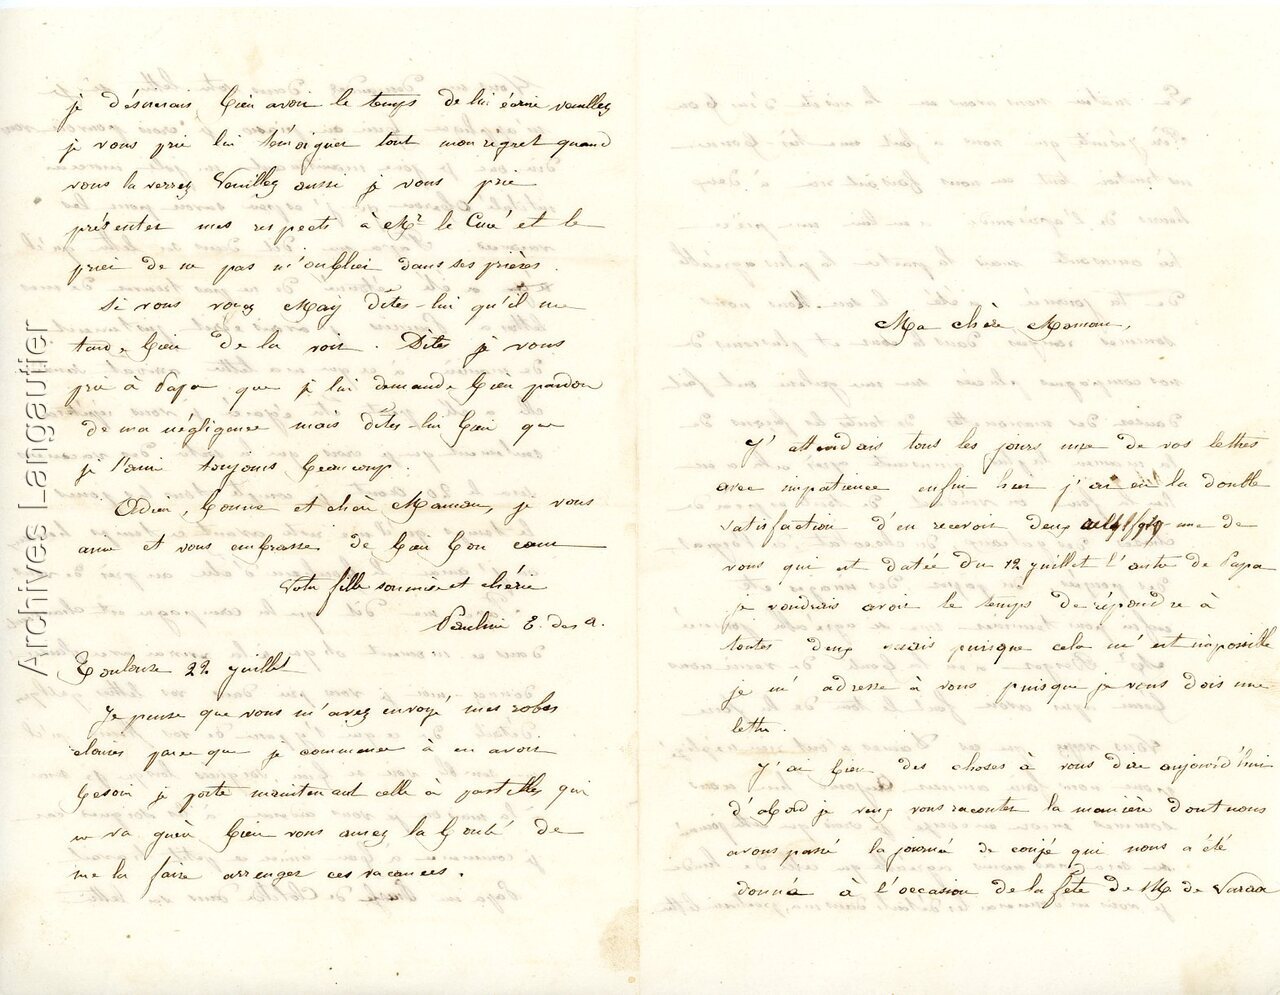 je désirerais bien avoir le temps de lui écrire veuillez
je vous prie lui témoigner tout mon regret quand
vous la verrez Veuillez aussi je vous prie
présenter mes respects à Mr le Curé et le
prier de ne pas m'oublier dans ses prières.
Si vous voyez May dîtes-lui qu'il me
tarde bien de la voir. Dites je vous
prie à Papa que je lui demande bien pardon
de ma négligence mais dîtes-lui bien que
je l'aime toujours beaucoup.
Adieu, bonne et chère Maman, je vous
aime et vous embrasse de bien bon cœur
Votre fille soumise et chérie
Pauline E. des a.
Toulouse 22 juillet
Je pense que vous m'avez envoyé mes robes
claires parce que je commence à en avoir
besoin je porte maintenant celle à pastilles qui
ne va guère bien vous aurez la bonté de
me la faire arranger ces vacances.
Ma chère Maman,
J'attendais tous les jours une de vos lettres
avec impatience enfin hier j'ai eu la double
satisfaction d'en recevoir deux une de
vous qui est datée du 12 juillet l'autre de Papa
je voudrais avoir le temps de répondre à
toutes deux mais puisque cela m'est impossible
je m'adresse à vous puisque je vous dois une
lettre.
J'ai bien des choses à vous dire aujourd'hui
d'abord je veux vous raconter la manière dont nous
avons passé la journée de congé qui nous a été
donné à l'occasion de la fête de M. de Varax
Archives Langautier